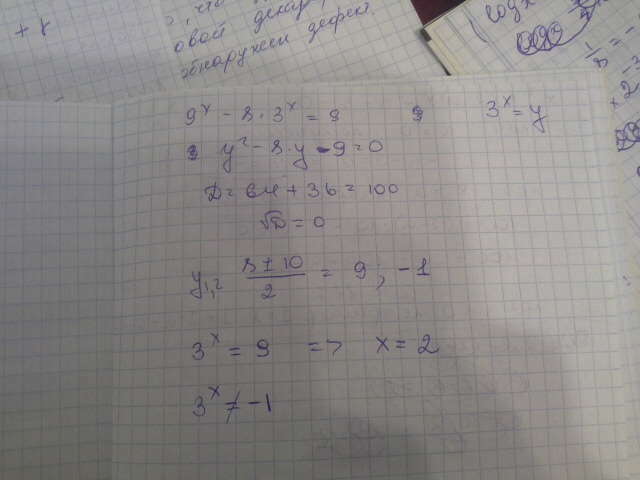 + r
, что
овой декор
обнаружен дефект.
log x
1/8 = -
9^x - 8 · 3^x = 9 3^x = y
y² - 8 · y - 9 = 0
D = 64 + 36 = 100
√D = 0
y1,2 (8 ± 10)/2 = 9 ; -1
3^x = 9 => x = 2
3^x ≠ -1